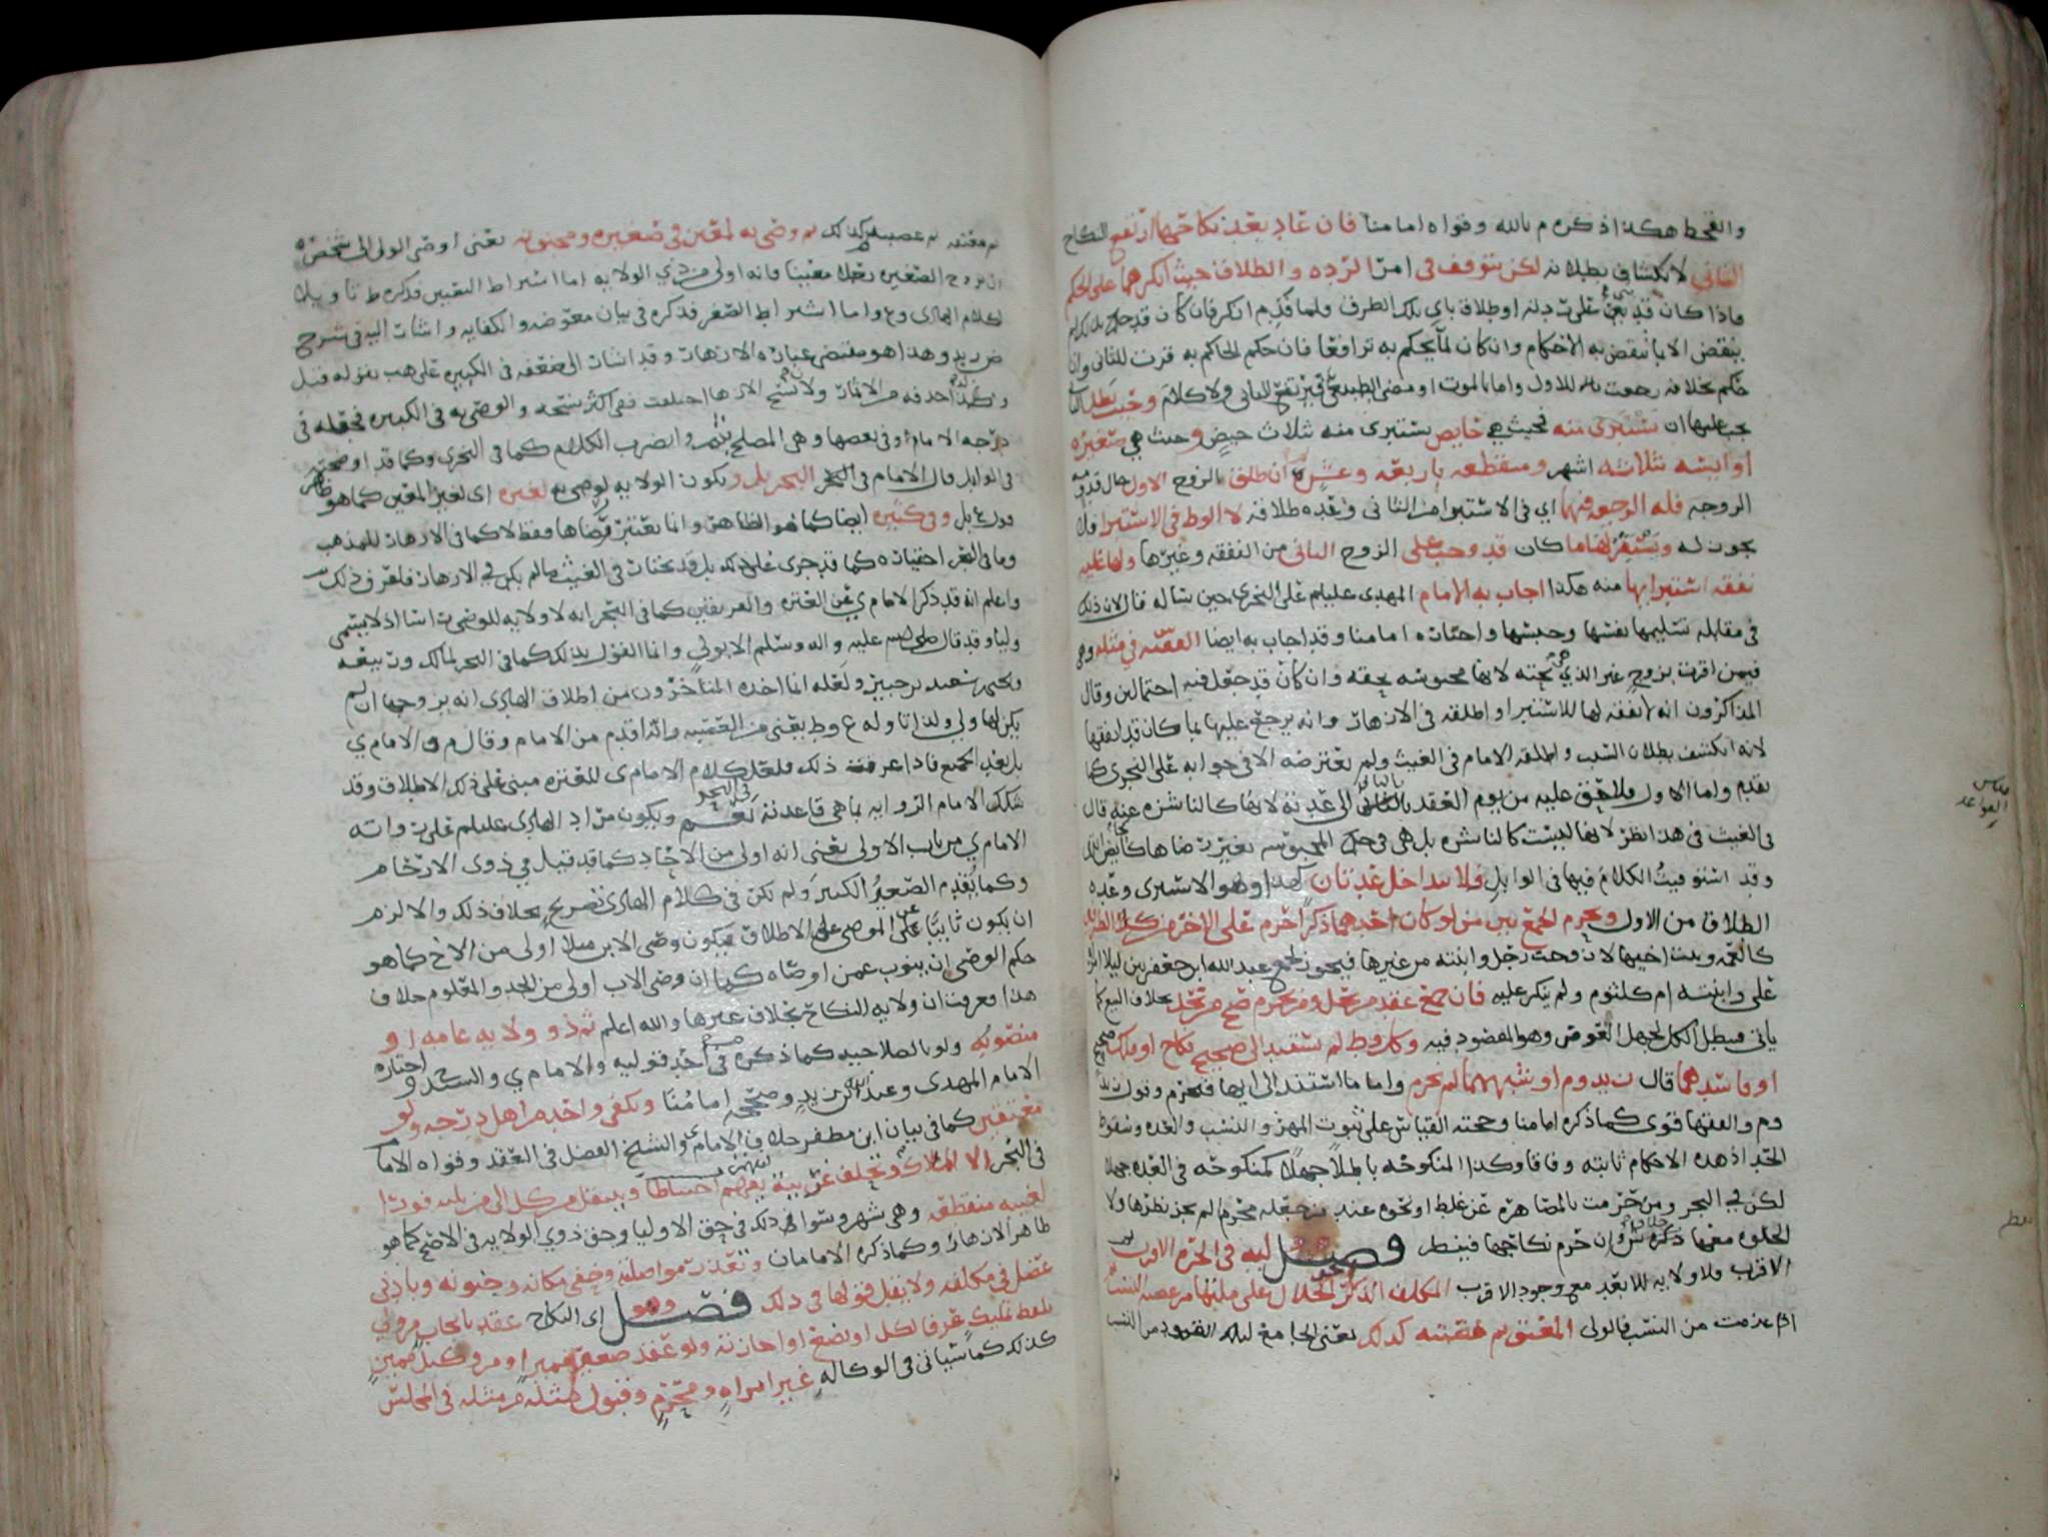 والقحط هكذا ذكره م بالله وقواه امامنا فان عاد بعد نكاحها ارتفع النكاح
الثاني لانكشاف بطلانه لكن يتوقف في امر الردة والطلاق حيث انكرهما على الحكم
بنقض الا بما ينقض به الاحكام وان كان لما يحكم به ترافعا فان حكم الحاكم به قرت للثاني وان
حكم بخلافه رجعت للاول واما بالموت او مضي الطبيعي
يجب عليها ان تستبرى منه فحيث هي حايض تستبرى منه بثلاث حيض وحيث هي صغيره
او ايسه بثلاثه اشهر ومنقطعه باربعه وعشر ان طلق الزوج الاول حال
الزوجه فله الرجعه فيها اي في الاستبرا من الثاني وعده طلاقه لا الوطي في الاستبرا فلا
يجوز له ويستقر لها ما كان قد وجب على الزوج الثاني من النفقه وغيرها ولها عليه
نفقه استبرايها منه هكذا اجاب به الامام المهدي عليلم على النجري حين ساله قال لان ذلك
في مقابلة تسليمها نفسها وحبسها واختاره امامنا وقد اجاب به ايضا الفقيه في مثله وهي
فيمن اقرت بزوج غير الذي هي تحته لانها محبوسه بحقه وان كان قد جعل فيه احتمالين وقال
المذاكرون انه لا نفقه لها للاستبرا واطلقه في الازهار وانه يرجع عليها بما كان قد انفقها
لانه انكشف بطلان السبب واطلقه الامام في الغيث ولم يعترضه الا في جوابه على النجري كما
تقدم واما الاول فلا حق عليه من يوم العقد بالثاني الى عدته لانها كالناشزه عنه قال
في الغيث في هذا نظر لانها ليست كالناشزه بل هي في حكم المحبوسه بغير رضاها
وقد استوفيت الكلام فيها في الوابل ولا تتداخل عدتان كهذا وهو الاستبرى وعده
الطلاق من الاول ويحرم الجمع بين من لو كان احدهما ذكرا حرم على الاخر من كلا الطرفين
كالعمه وبنت اخيها لا زوجت رجل وابنته من غيرها فيجوز لجمع عبدالله ابن جعفر بين ليلا امراه
علي وابنته ام كلثوم ولم ينكر عليه فان جمع عقد من تحل ومن تحرم صح من تحل بخلاف البيع كما
ياتي فيبطل الكل لجهل العوض وهو المقصود فيه وكل وطي لم يستند الى صحيح نكاح او ملك
او فاسدهما قال زيد وم او شبههما لم يحرم واما ما استند الى ايها فيحرم
وم والفقها قوي كما ذكره امامنا وحجته القياس على ثبوت المهر والنسب والعده وسقوط
الحد اذ هذه الاحكام ثابته وفاقا وكذا المنكوحه باطلا جهلا كمنكوحه في العده جهلا
لكن في البحر ومن حرمت بالمصاهره عن غلط او نحوه عند من جعله محرم لم يجز نظرها ولا
الخلوه معها ذكره ش وان حرم نكاحها فينظر فصل وليه في الحره الاقرب
الاقرب ولا ولايه للابعد مع وجود الاقرب المكلف الذكر الحلال على ملتها من عصبه النسب
اذا عدمت من النسب فالولي المعتق ثم عصبته كذلك يعني الجامع لتلك القيود من النسب
مقاس
القواعد
ينظر
ثم معتقه ثم عصبته كذلك ثم وصي به لمعين في صغيره ومجنونه يعني اوصى الولي الى شخص
ان يزوج الصغيره رجلا معينا فانه اولى من ذي الولايه اما اشتراط التعيين فذكره ط تاويلا
لكلام الهادي وع واما اشتراط الصغر فذكره في بيان معوضه والكفايه واشار اليه في شرح
ض زيد وهذا هو مقتضى عباره الازهار وقد اشار الى ضعفه في الكبيره على هب بقوله قيل
ولهذا حذفه من الاثمار
درجه الامام او في بعضها وهي المصلح وايضرب الكلام كما في النجري وكما قد اوضحته
في الوابل وقال الامام في البحر بل وتكون الولايه لوصي به لغيره اي لغير المعين كما هو
وفي كبيره ايضا كما هو الظاهر وانما يعتبر رضاها فقط لا كما في الازهار للمذهب
واعلم انه قد ذكر الامام ي عن العتره والفريقين كما في البحر انه لا ولايه للوصي راسا اذ لا يسمى
وليا وقد قال صلى الله عليه واله وسلم الا بولي وانما القول بذلك كما في البحر لمالك وربيعه
ولعله انما اخذه المتاخرون من اطلاق الهادي انه يزوجها ان لم
يكن لها ولي ولذا تاوله ع وط يعني من العقبيه وانه اقدم من الامام وقال م والامام ي
بل بعد الجميع فاذا عرفت ذلك فلعل كلام الامام ي للعتره مبني على ذلك الاطلاق وقد
شكك الامام الروايه بما هي قاعدته في البحر نعم ويكون مراد الهادي عليلم على راي
الامام ي من باب الاولى يعني انه اولى من الاحاد كما قد قيل في ذوي الارحام
وكما يقدم الصغير الكبير ولم يكن في كلام الهادي تصريح بخلاف ذلك والا لزم
ان يكون نايبا عن الموصي على الاطلاق فيكون وصي الابن مثلا اولى من الاخ كما هو
حكم الوصي ان ينوب عمن اوصاه كما ان وصي الاب اولى من الجد والمعلوم خلاف
هذا فعرفت ان ولايه النكاح بخلاف غيرها والله اعلم ثم ذو ولايه عامه او
منصوبه ولو بالصلاحيه كما ذكره في احد قوليه والامام ي
الامام المهدي وعند ابن زيد وصححه امامنا ويكفي واحد من اهل درجه ولو
معتقين كما في بيان ابن مظفر خلاف الامام ي والشيخ الفضل في العقد وقواه الامام
في البحر الا الملاك وتحلف غريبه احتياطا وينتقل من كل الى من يليه فورا
لغيبه منقطعه وهي شهر وسوا في ذلك في حق الاوليا وحق ذوي الولايه في الاصح كما هو
ظاهر الازهار وكما ذكره الامامان وتعذر مواصلته وخفي مكانه وجنونه وبادنى
عضل في مكلفه ولا يقبل قولها في ذلك فصل وهو اي النكاح عقد بايجاب من ولي
بلفظ تمليك عرفا لكل او بضع او اجازته ولو عقد صغير مميز او من وكيل مميز
كذلك كما سياتي في الوكاله غير امراه ومحرم وقبول مثله من مثله في المجلس